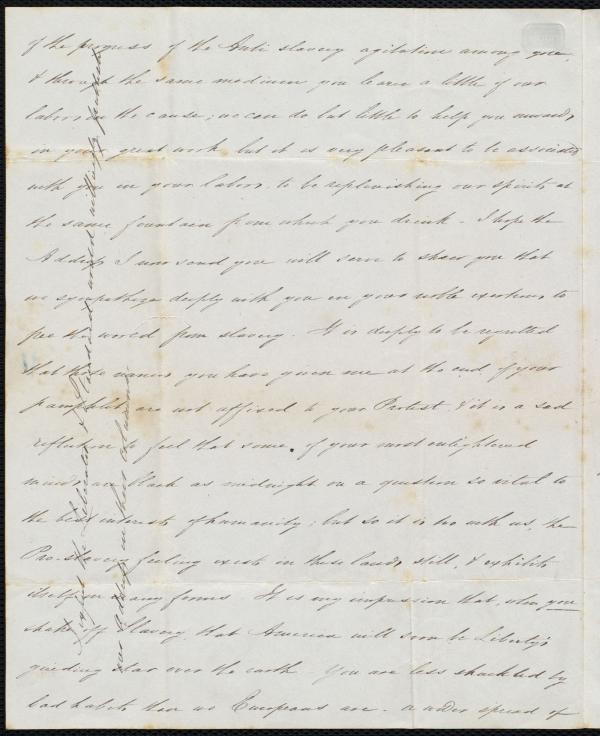 of the progress of the Anti slavery agitation among you,
& through the same medium you learn a little of our
labors in the cause; we can do but little to help you onwards
in your great work but it is very pleasant to be associated
with you in your labors, to be replenishing our spirits at
the same fountain from which you drink. I hope the
Address I now send you will serve to show you that
we sympathize deeply with you in your noble exertions to
free the world from slavery. It is deeply to be regretted
that those names you have given me at the end of your
pamphlet are not affixed to your Protest, & it is a sad
reflection to feel that some of your most enlightened
minds are black as midnight on a question so vital to
the best interests of humanity; but so it is too with us, the
Pro-slavery feeling exists in these lands still, & exhibits
itself in many forms It is my impression that, when you
shake off Slavery, that America will soon be Liberty's
guiding star over the earth. You are less shackled by
bad habits than we Europeans are. a wider spread of
I expect the Liberator & Standard would willingly publish
our address in their columns